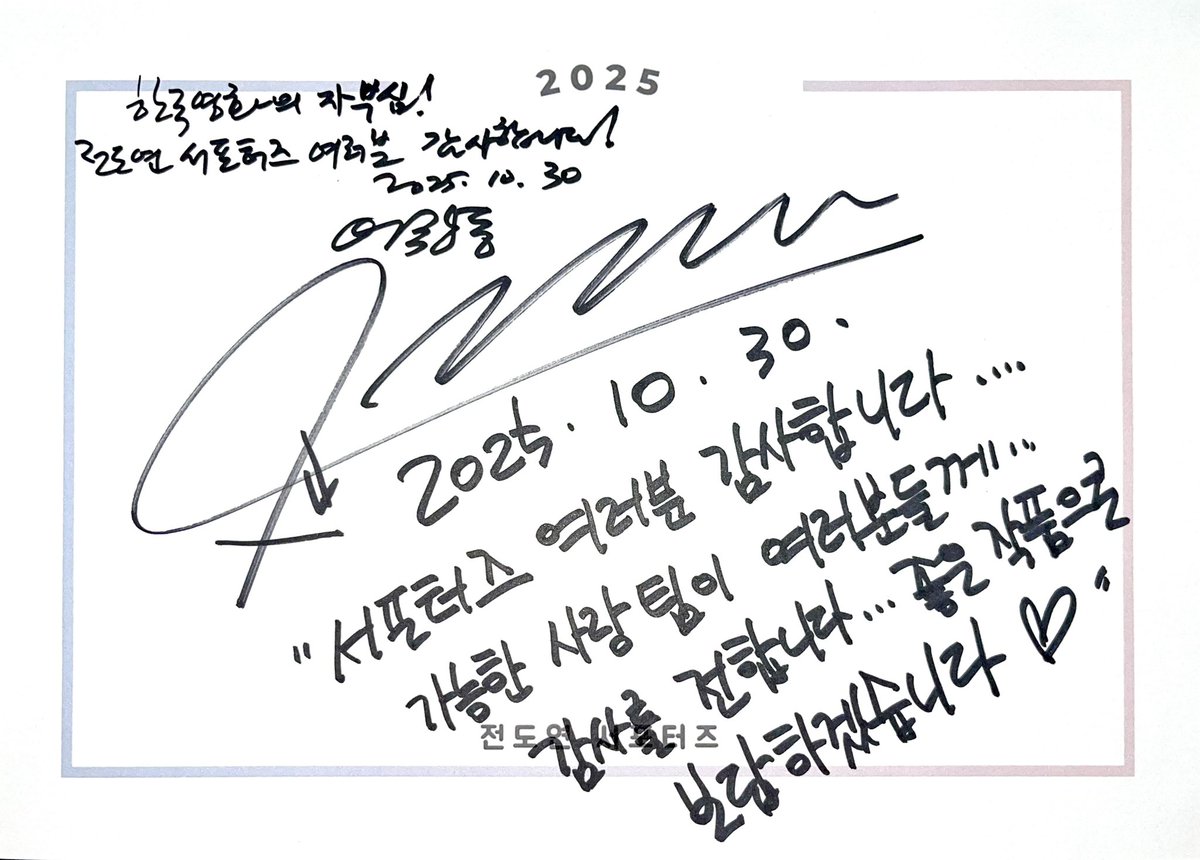 2025
한국영화의 자부심!
전도연 서포터즈 여러분 감사합니다!
2025. 10. 30
이창동
2025. 10. 30.
"서포터즈 여러분 감사합니다....
가능한 사랑 팀이 여러분들께...
감사를 전합니다... 좋은 작품으로
보답하겠습니다♡"
전도연 서포터즈